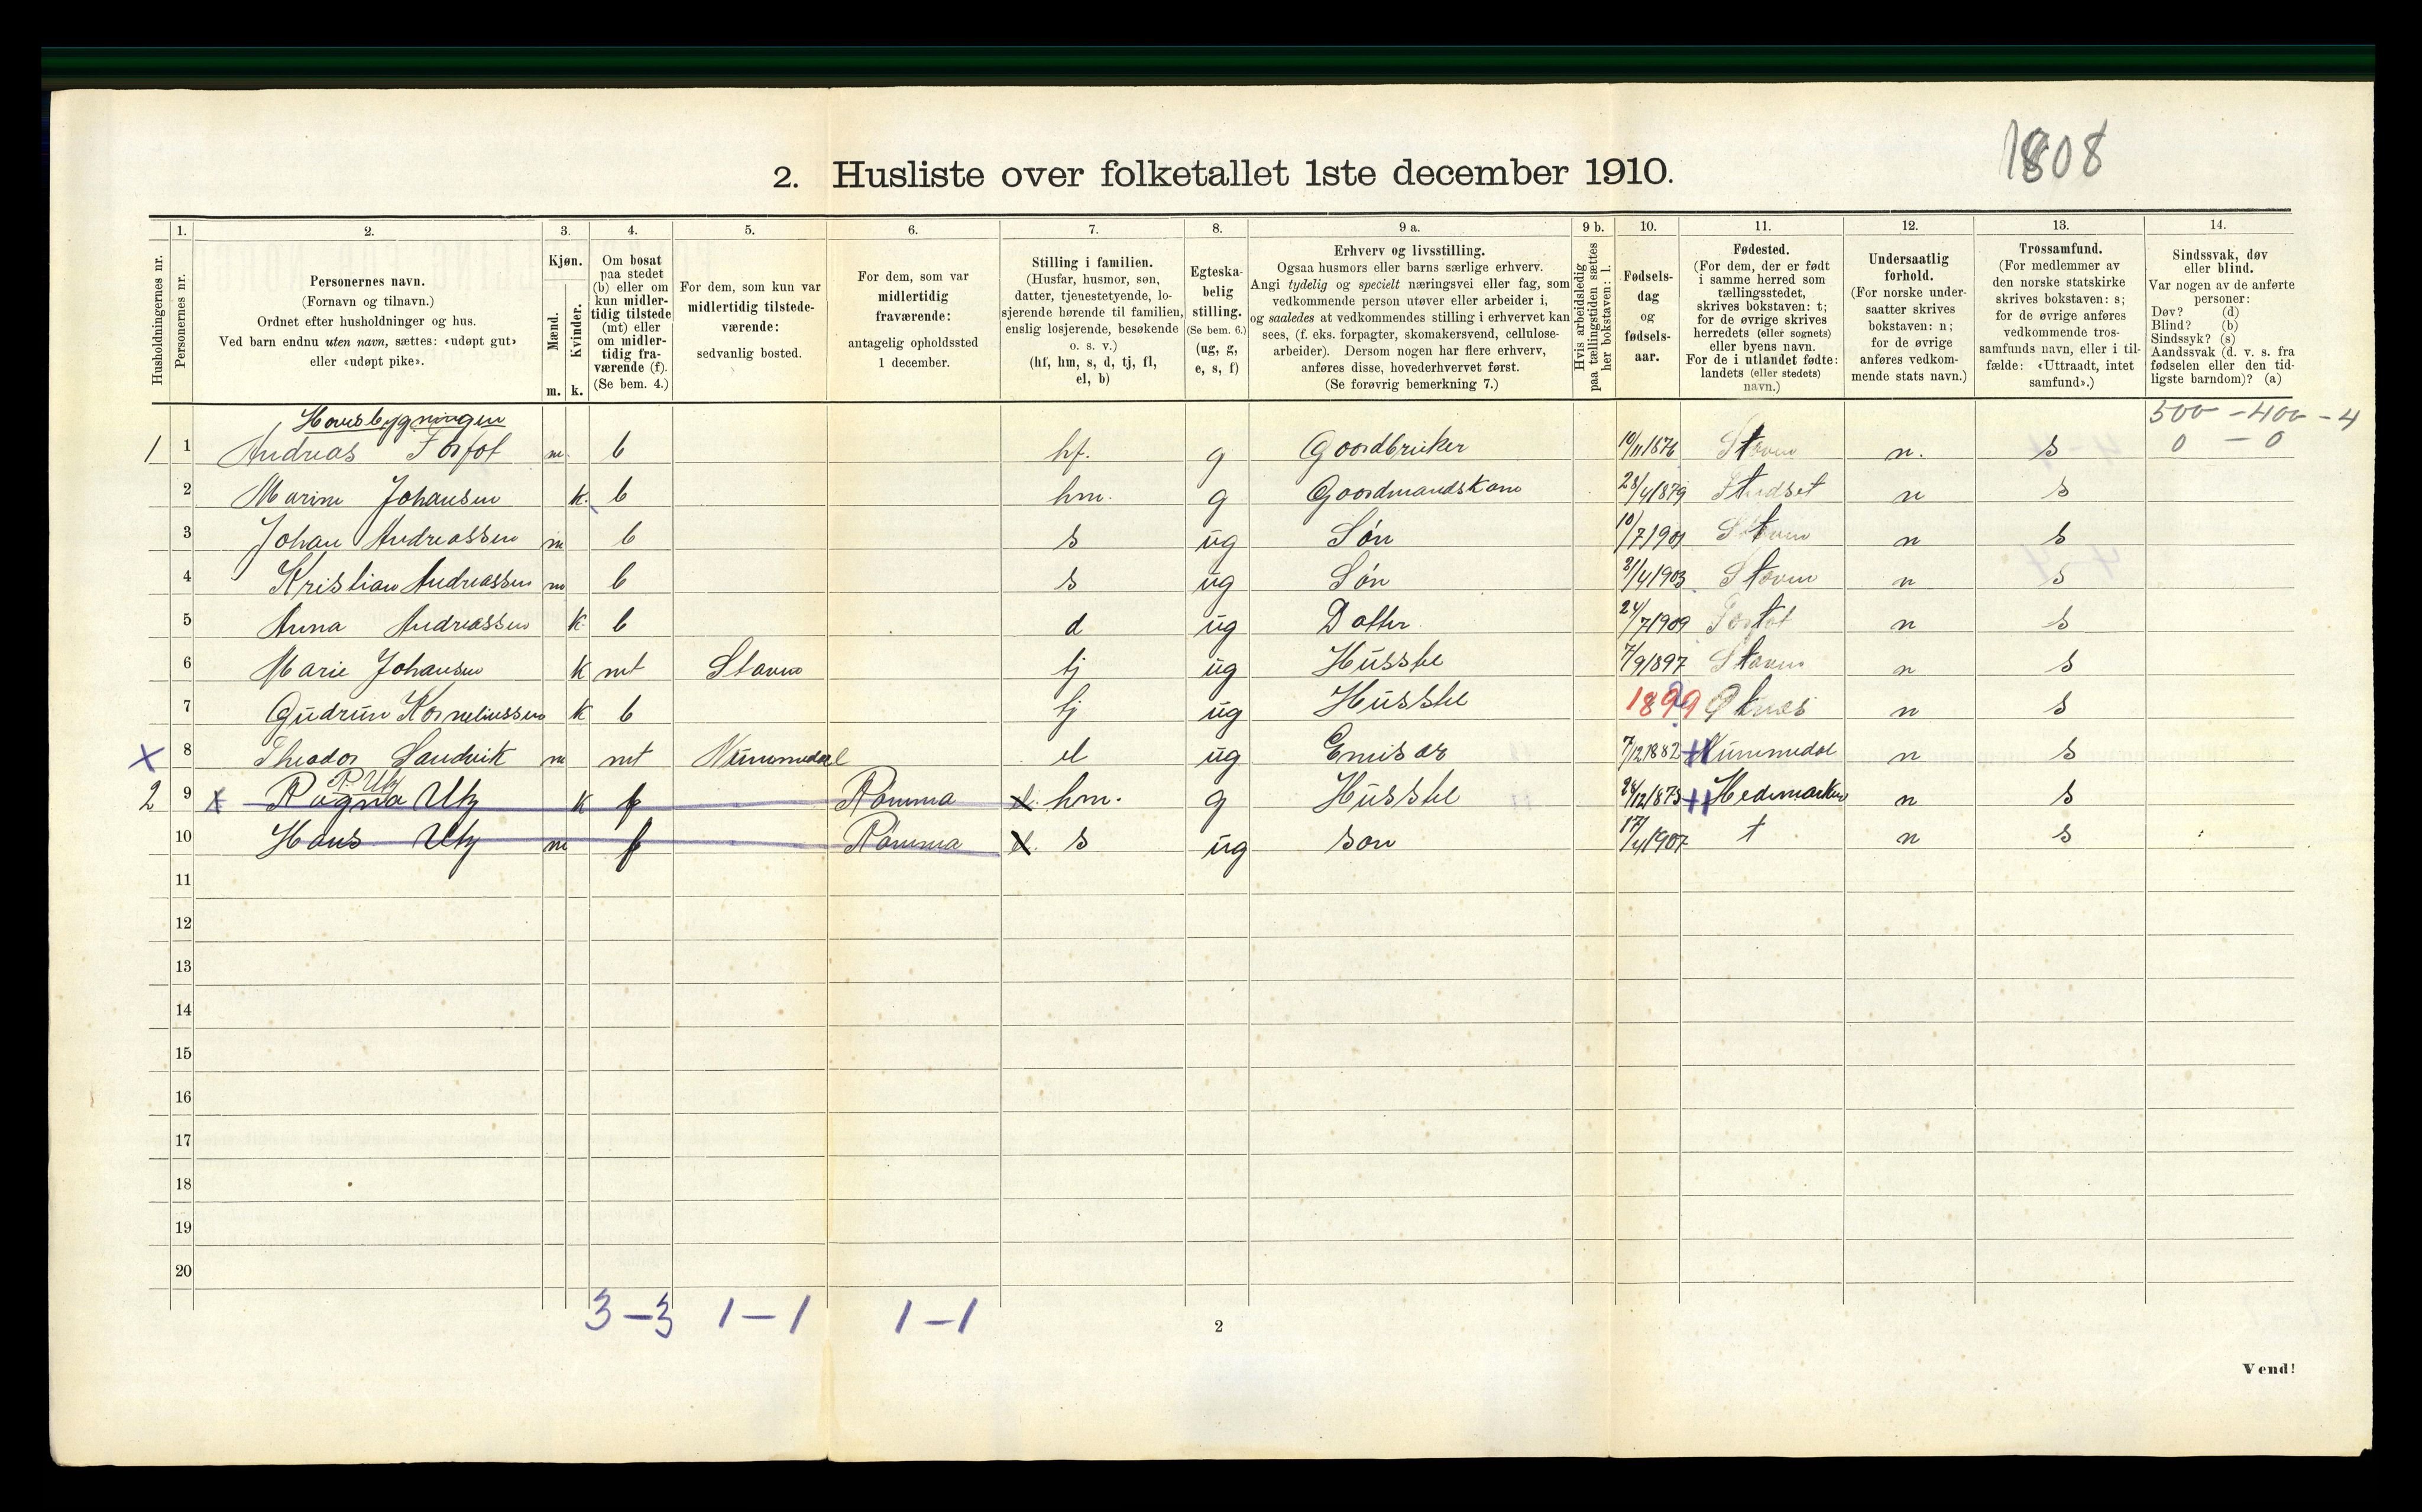 1808
2. Husliste over folketallet 1ste december 1910.
1. 2. 3. 4. 5. 6. 7. 8. 9 a. 9 b. 10. 11. 12. 13. 14.
Husholdningernes nr.
Personernes nr.
Personernes navn.
(Fornavn og tilnavn.)
Ordnet efter husholdninger og hus.
Ved barn endnu uten navn, sættes: «udøpt gut»
eller «udøpt pike».
Kjøn.
Mænd.
Kvinder.
m. k.
Om bosat
paa stedet
(b) eller om
kun midler-
tidig tilstede
(mt) eller
om midler-
tidig fra-
værende (f).
(Se bem. 4.)
For dem, som kun var
midlertidig tilstede-
værende:
sedvanlig bosted.
For dem, som var
midlertidig
fraværende:
antagelig opholdssted
1 december.
Stilling i familien.
(Husfar, husmor, søn,
datter, tjenestetyende, lo-
sjerende hørende til familien,
enslig losjerende, besøkende
o. s. v.)
(hf, hm, s, d, tj, fl,
el, b)
Egteska-
belig
stilling.
(Se bem. 6.)
(ug, g,
e, s, f)
Erhverv og livsstilling.
Ogsaa husmors eller barns særlige erhverv.
Angi tydelig og specielt næringsvei eller fag, som
vedkommende person utøver eller arbeider i,
og saaledes at vedkommendes stilling i erhvervet kan
sees, (f. eks. forpagter, skomakersvend, cellulose-
arbeider). Dersom nogen har flere erhverv,
anføres disse, hovederhvervet først.
(Se forøvrig bemerkning 7.)
Hvis arbeidsledig
paa tællingstiden sættes
her bokstaven: l.
Fødsels-
dag
og
fødsels-
aar.
Fødested.
(For dem, der er født
i samme herred som
tællingsstedet,
skrives bokstaven: t;
for de øvrige skrives
herredets (eller sognets)
eller byens navn.
For de i utlandet fødte:
landets (eller stedets)
navn.)
Undersaatlig
forhold.
(For norske under-
saatter skrives
bokstaven: n;
for de øvrige
anføres vedkom-
mende stats navn.)
Trossamfund.
(For medlemmer av
den norske statskirke
skrives bokstaven: s;
for de øvrige anføres
vedkommende tros-
samfunds navn, eller i til-
fælde: «Uttraadt, intet
samfund».)
Sindssvak, døv
eller blind.
Var nogen av de anførte
personer:
Døv? (d)
Blind? (b)
Sindssyk? (s)
Aandssvak (d. v. s. fra
fødselen eller den tid-
ligste barndom)? (a)
Hovsbygningen 500 - 400 - 4
1 1 Andreas Forfot m. b hf. g Goordbruker 10/11 1876 Staven n. s 0 - 0
2 Marine Johansen k. b hm. g Goordmandskone 28/4 1879 n s
3 Johan Andreassen m b s ug Søn 10/7 1901 Staven n s
4 Kristian Andreassen m b s ug Søn 21/4 1903 Staven n s
5 Anna Andreassen k b d ug Datter 24/7 1909 n s
6 Marie Johansen k mt Staven tj ug Husstel 7/9 1897 Staven n s
7 Gudrun Korneliussen k b tj ug Husstel 1899 Øknes n s
X 8 Theodor Sandvik m mt Nummedal el ug Emisær 7/12 1882 Nummedal n s
R Utz
2 9 X Ragna Utz k f Ramma hm. g Husstel 28/12 1873 Hedemarken n s
10 Hans Utz m f Ramma s ug søn 17/4 1907 t n s
11
12
13
14
15
16
17
18
19
20
3-3 1-1 1-1
2
Vend!